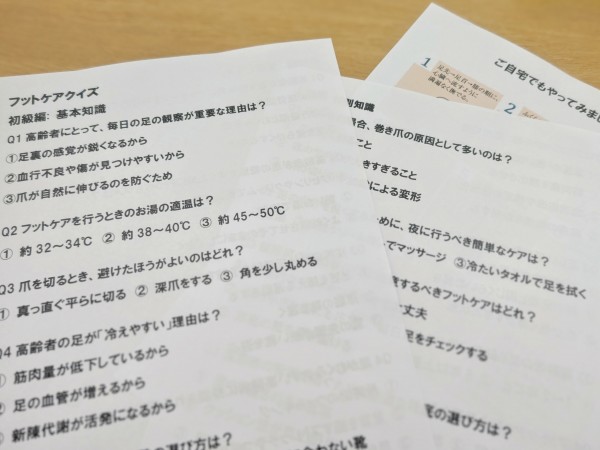 フットケアクイズ
初級編: 基本知識
Q1 高齢者にとって、毎日の足の観察が重要な理由は？
①足裏の感覚が鋭くなるから
②血行不良や傷が見つけやすいから
③爪が自然に伸びるのを防ぐため
Q2 フットケアを行うときのお湯の適温は？
① 約 32～34℃ ② 約 38～40℃ ③ 約 45～50℃
Q3 爪を切るとき、避けたほうがよいのはどれ？
① 真っ直ぐ平らに切る ② 深爪をする ③ 角を少し丸める
Q4 高齢者の足が「冷えやすい」理由は？
① 筋肉量が低下しているから
② 足の血管が増えるから
③ 新陳代謝が活発になるから
の選び方は？
合わない靴
別知識
場合、巻き爪の原因として多いのは？
こと
きすぎること
による変形
ために、夜に行うべき簡単なケアは？
でマッサージ ③冷たいタオルで足を拭く
するべきフットケアはどれ？
丈夫
足をチェックする
の選び方は？
ご自宅でもやってみまし
1
足先→足首→膝の順に、
心臓へ戻すように
優しく撫でる。
2